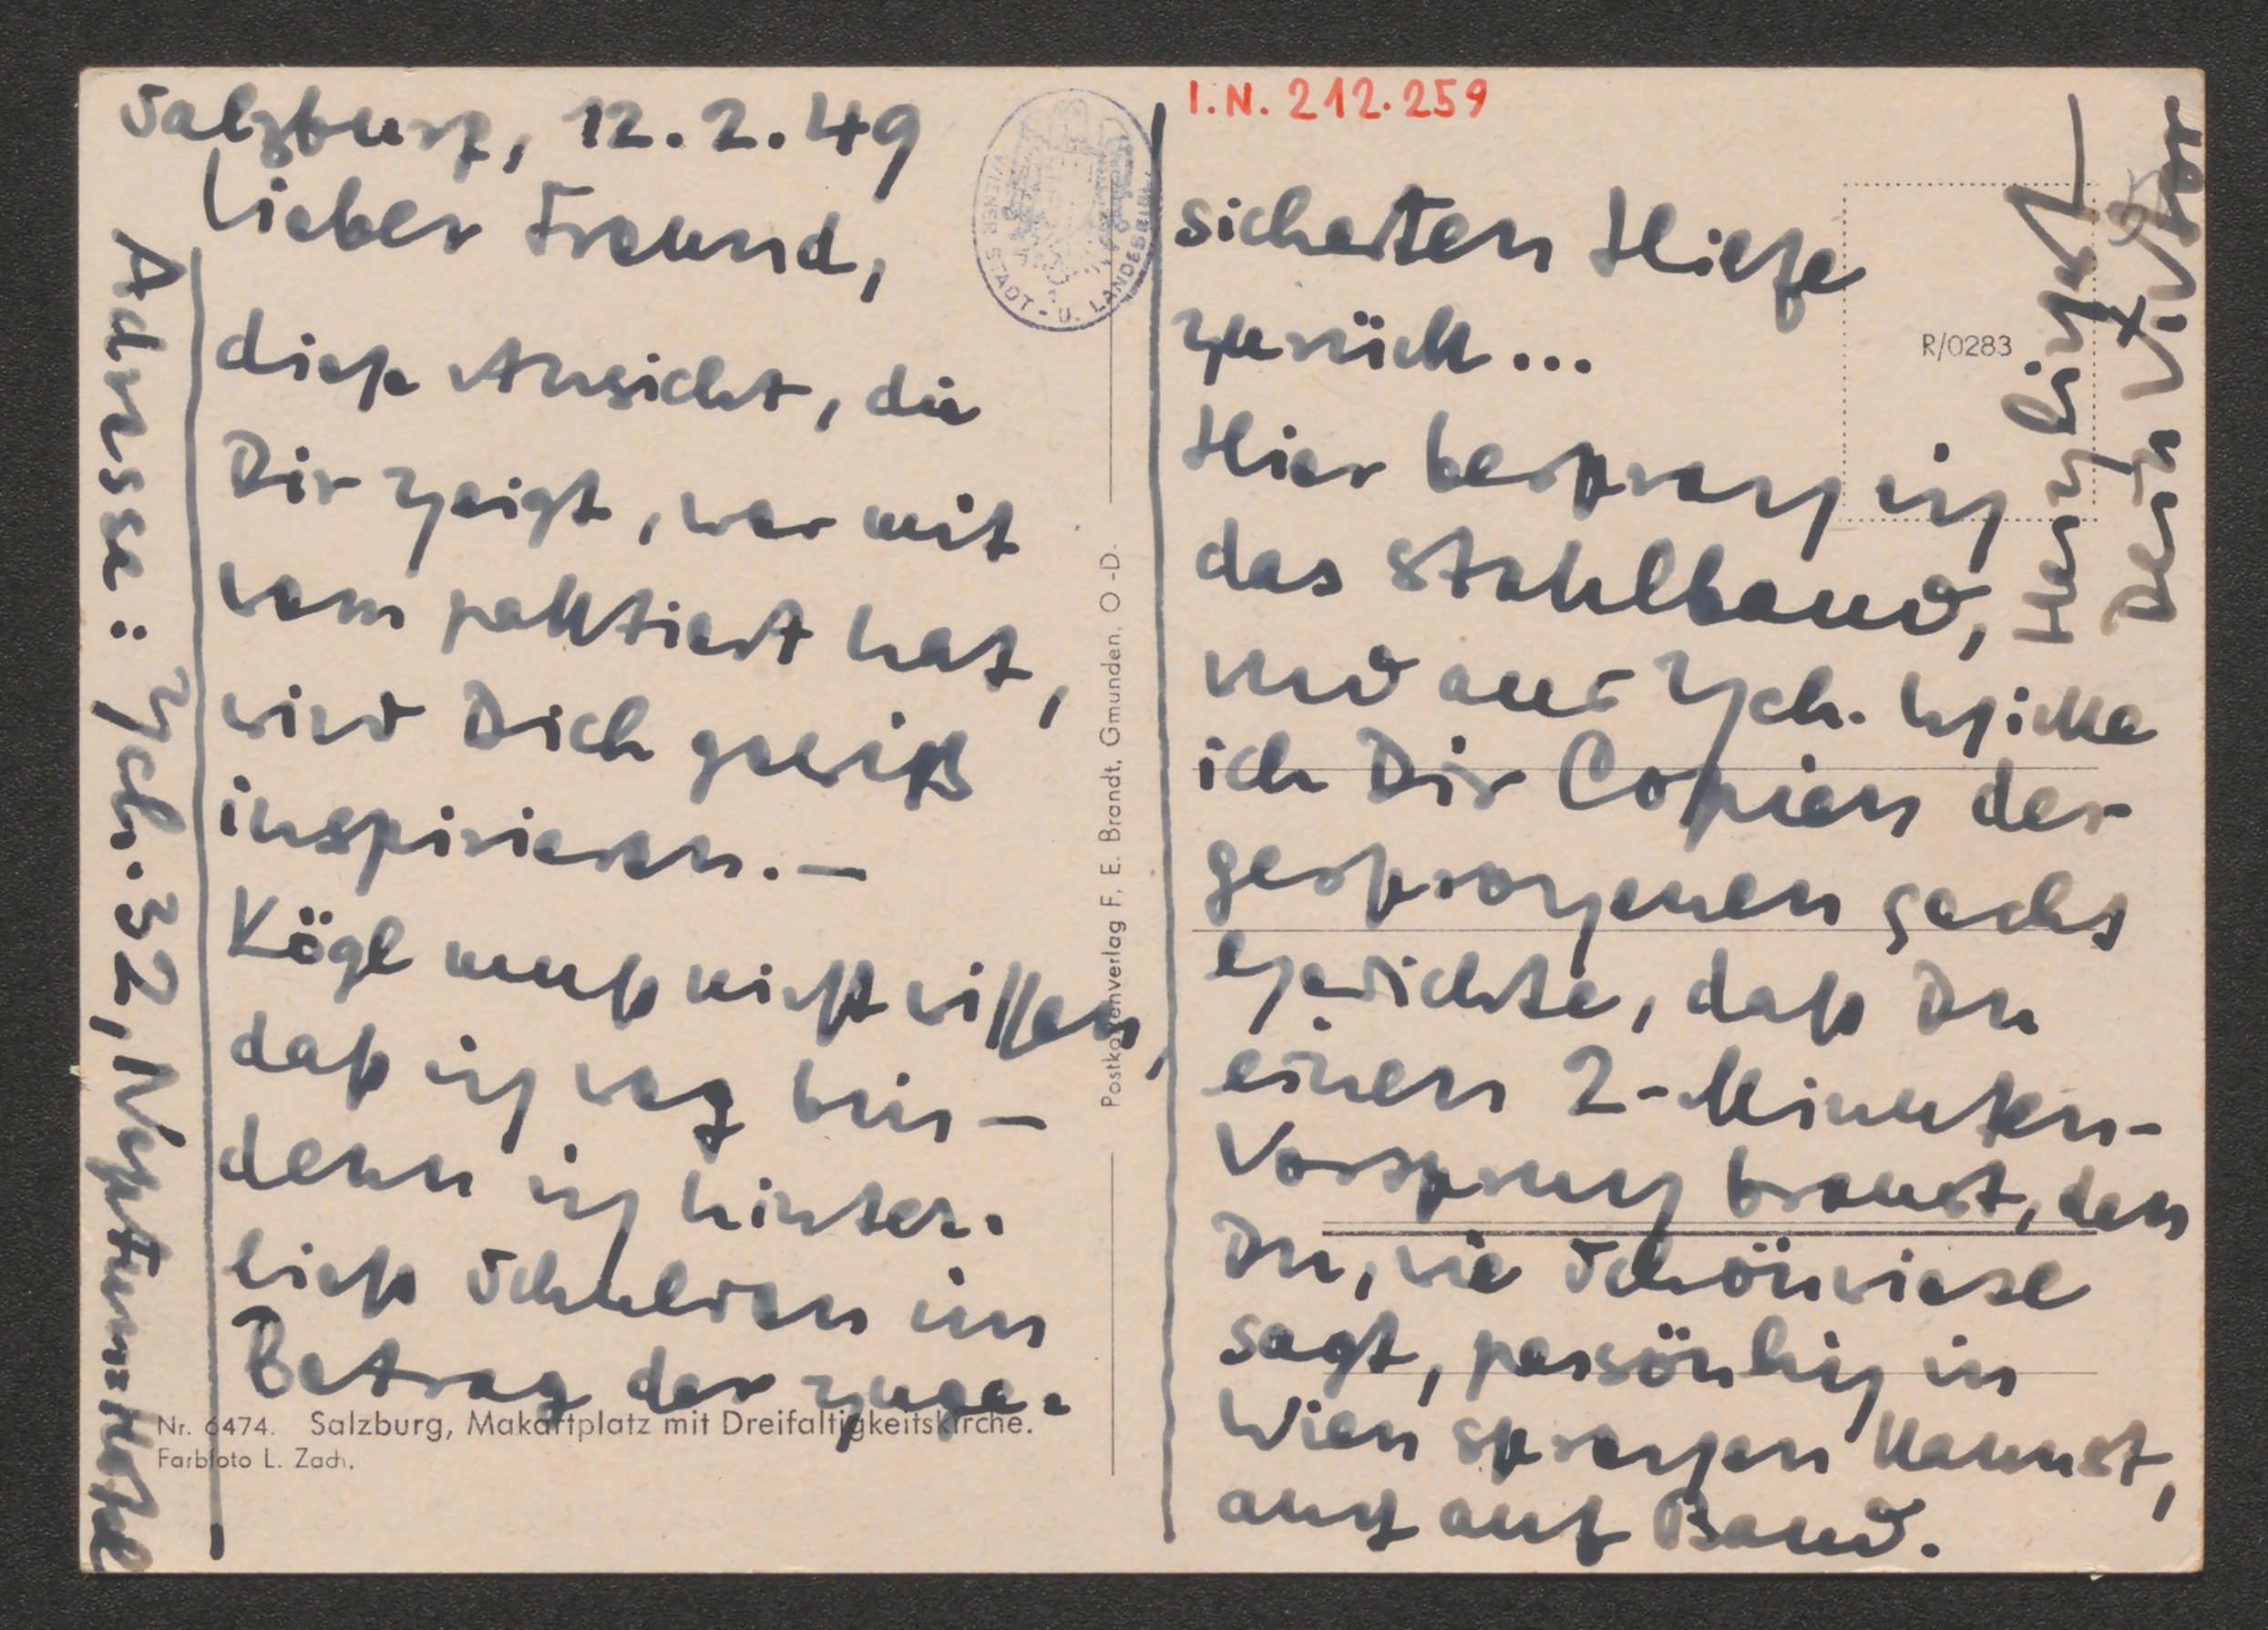 I.N. 212.259
Salzburg, 12.2.49
Lieber Freund,
diese Ansicht, die
Dir zeigt, wer mit
wem paktiert hat,
wird Dich gewiß
inspirieren. –
Kögl muß nicht wissen,
daß ich weg bin –
denn ich hinter-
ließ Schulden im
Betrag der zuge-
sicherten Hiefe
zurück...
Hier besprach ich
das Stahlband,
und aus Zch. schicke
ich Dir Copien der
gesprochenen sechs
Gedichte, daß Du
einen 2-Minuten-
Vorsprung braust, den
Du, wie Schönwiese
sagt, persönlich in
Wien sprechen kannst,
auch auf Band.
Herzlichst
Dein Viktor
Adresse: Zch. 32, Neptun=Hotel
WIENER STADT- U. LANDESBIBL.
R/0283
Postkartenverlag F. E. Brandt, Gmunden, O.-D.
Nr. 6474. Salzburg, Makartplatz mit Dreifaltigkeitskirche.
Farbfoto L. Zach.